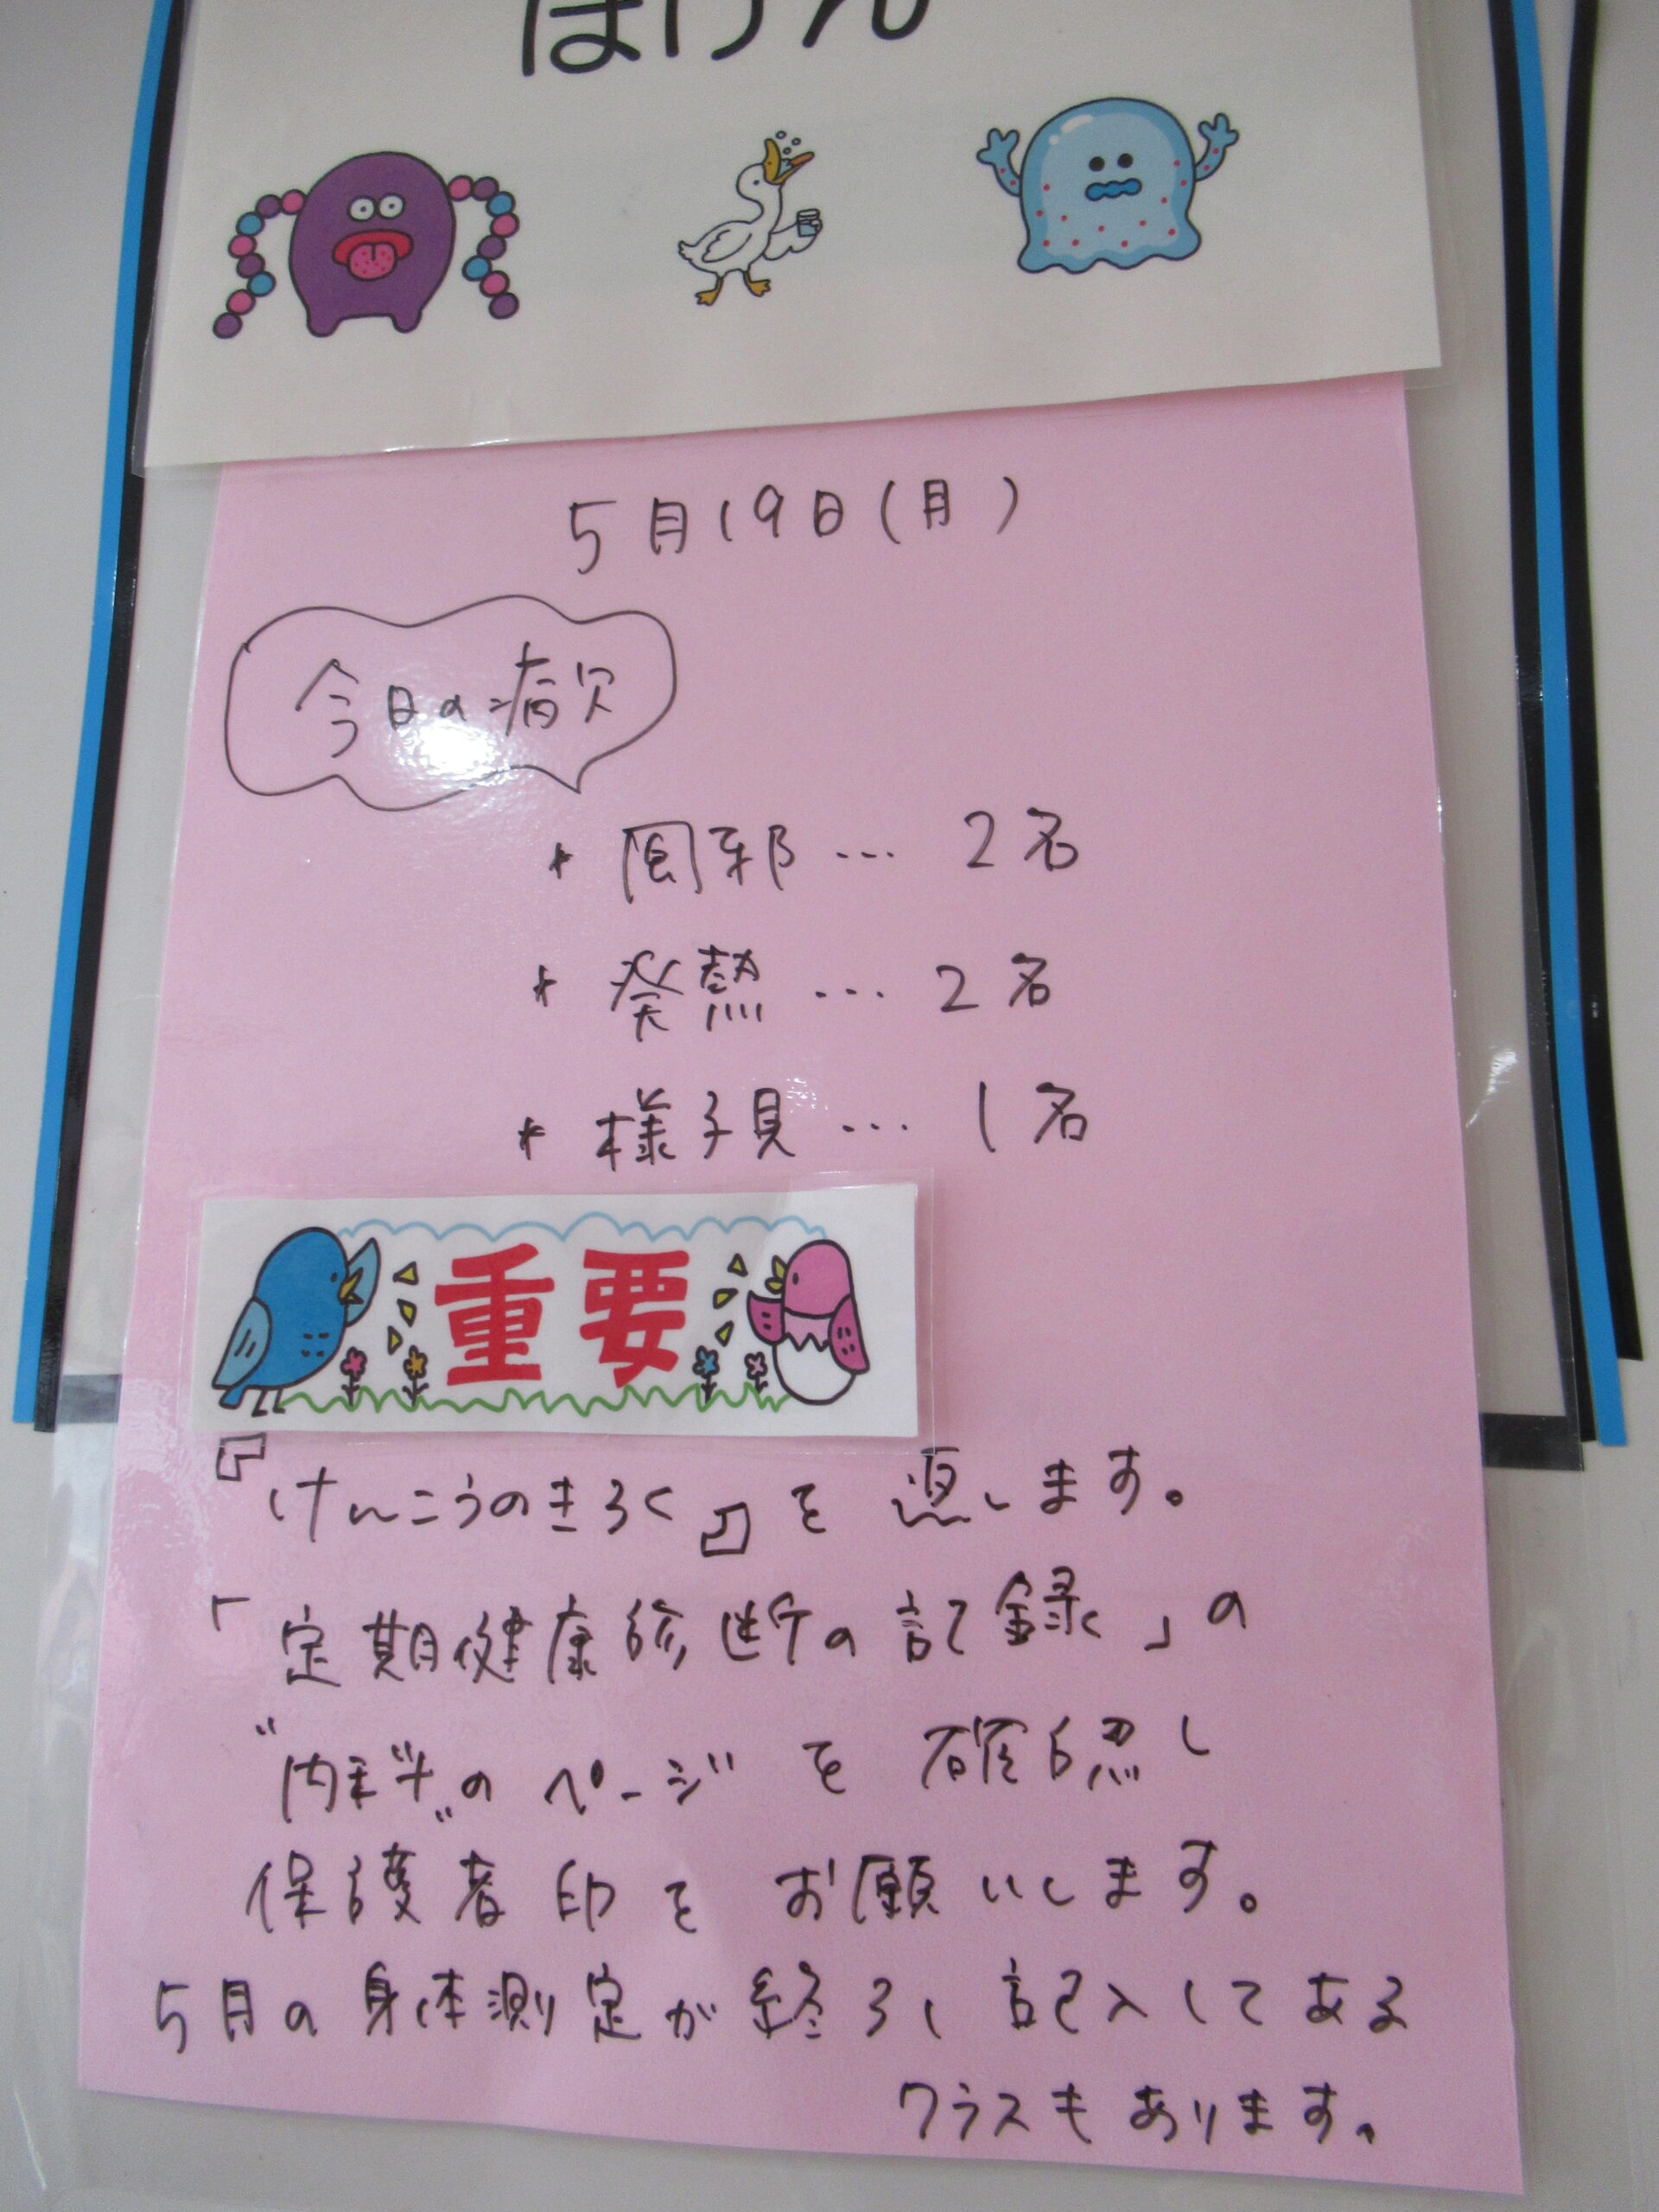 ほけん
5月19日(月)
今日の病欠
* 風邪… 2名
* 発熱… 2名
* 様子見… 1名
重要
『けんこうのきろく』を返します。
「定期健康診断の記録」の
"内科"のページを確認し
保護者印をお願いします。
5月の身体測定が終ろし記入してある
クラスもあります。